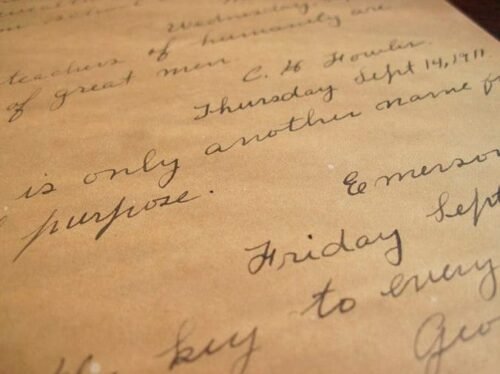 Wednesday,
teachers of humanity are
of great men.
C. H. Fowler.
Thursday Sept 14, 1911.
is only another name f
purpose.
Emerson
Friday Sept
key to every
Geo